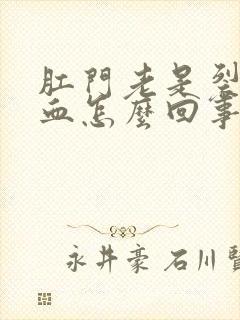 肛門老是裂
血怎麼回事
永井豪 石川賢